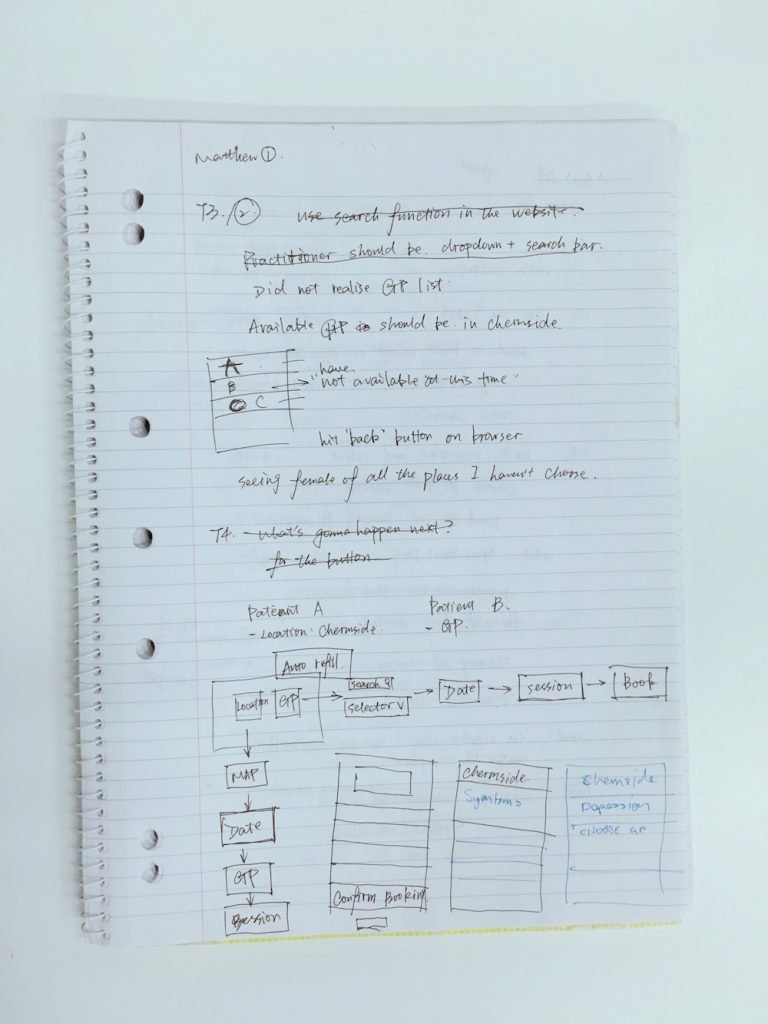 Matthew ①.
T3. ② use search function in the website.
Practitioner should be dropdown + search bar.
Did not realise GP list.
Available GP should be in chermside.
A
have
B "not available at this time"
C
hit "back" button on browser
seeing female of all the places I haven't choose.
T4. What's gonna happen next?
for the button
Patient A Patient B.
- Location: Chermside. - GP.
Auto refill.
Location GP search selector Date session Book
MAP
Date
GP
session
Confirm Booking
Chermside
Chermside
choose GP